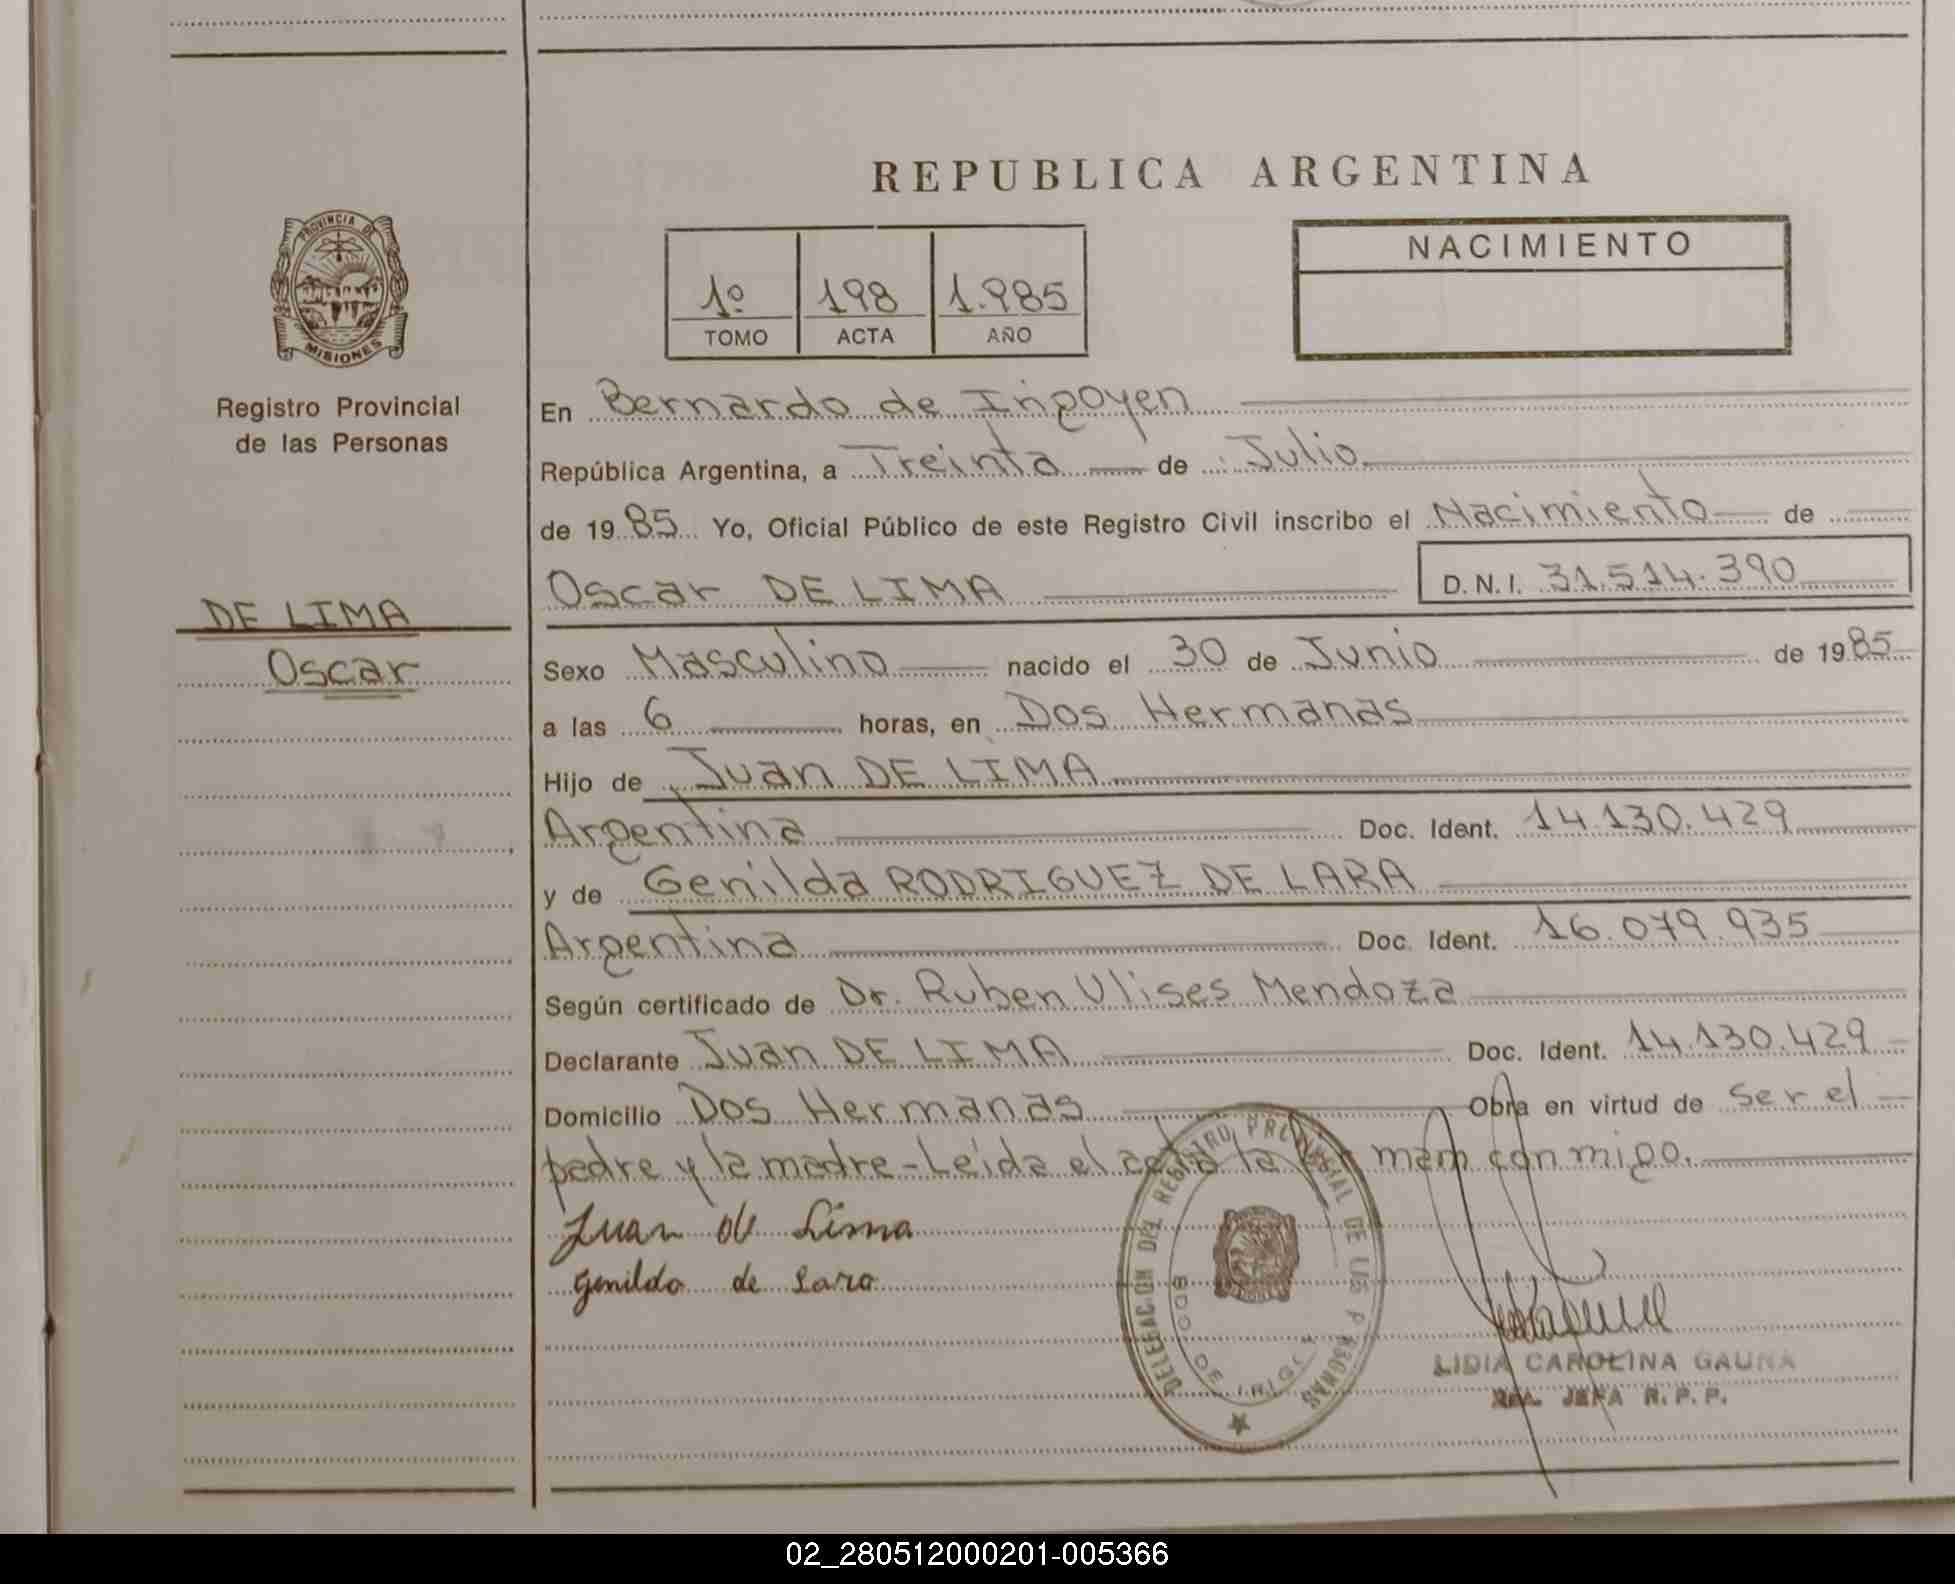 REPUBLICA ARGENTINA
PROVINCIA DE
MISIONES
Registro Provincial
de las Personas
DE LIMA
Oscar
1º 198 1.985
TOMO ACTA AÑO
NACIMIENTO
En Bernardo de Irigoyen
República Argentina, a Treinta de Julio
de 1985 Yo, Oficial Público de este Registro Civil inscribo el Nacimiento de
Oscar DE LIMA D.N.I. 31.514.390
Sexo Masculino nacido el 30 de Junio de 1985
a las 6 horas, en Dos Hermanas
Hijo de Juan DE LIMA
Argentina Doc. Ident. 14.130.429
y de Genilda RODRIGUEZ DE LARA
Argentina Doc. Ident. 16.079.935
Según certificado de Dr. Ruben Ulises Mendoza
Declarante Juan DE LIMA Doc. Ident. 14.130.429
Domicilio Dos Hermanas Obra en virtud de Ser el
padre y la madre - Leida el acta la firman conmigo.
Juan de Lima
Genilda de Lara
DELEGACION DEL REGISTRO PROVINCIAL DE LAS PERSONAS
LIDIA CAROLINA GAUNA
JEFA R.P.P.
02_280512000201-005366